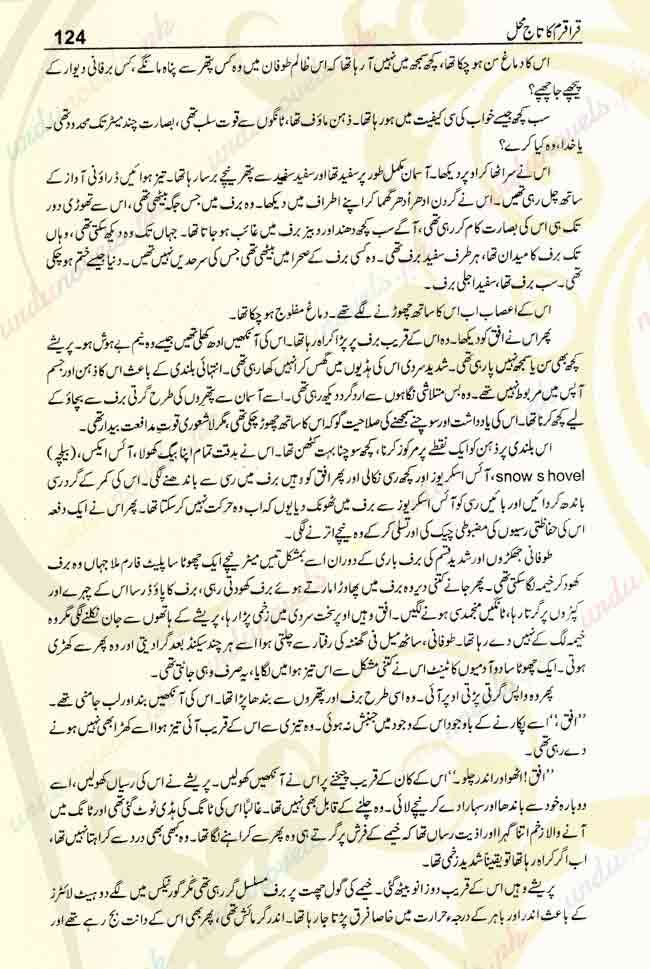 قراقرم کا تاج محل
124
اس کا دماغ سن ہو چکا تھا، کچھ سمجھ میں نہیں آ رہا تھا کہ اس ظالم طوفان میں وہ کس پتھر سے پناہ مانگے، کس برفانی دیوار کے
پیچھے جا چھپے؟
سب کچھ جیسے خواب کی سی کیفیت میں ہو رہا تھا۔ ذہن ماؤف تھا، ٹانگوں سے قوت سلب تھی، بصارت چند میٹر تک محدود تھی۔
یا خدا، وہ کیا کرے؟
اس نے سر اٹھا کر اوپر دیکھا۔ آسمان مکمل طور پر سفید تھا اور سفید سفید سے پتھر نیچے برسا رہا تھا۔ تیز ہوائیں ڈراؤنی آواز کے
ساتھ چل رہی تھیں۔ اس نے گردن ادھر اُدھر گھما کر اپنے اطراف میں دیکھا۔ وہ برف میں جس جگہ بیٹھی تھی، اس سے تھوڑی دور
تک ہی اس کی بصارت کام کر رہی تھی، آگے سب کچھ دھند اور دبیز برف میں غائب ہو جاتا تھا۔ جہاں تک وہ دیکھ سکتی تھی، وہاں
تک برف کا میدان تھا، ہر طرف سفید برف تھی۔ وہ کسی برف کے صحرا میں بیٹھی تھی جس کی سرحدیں نہیں تھیں۔ دنیا جیسے ختم ہو چکی
تھی۔ سب برف تھا، سفید اجلی برف۔
اس کے اعصاب اب اس کا ساتھ چھوڑنے لگے تھے۔ دماغ مفلوج ہو چکا تھا۔
پھر اس نے افق کو دیکھا۔ وہ اس کے قریب برف پر پڑا کراہ رہا تھا۔ اس کی آنکھیں ادھ کھلی تھیں جیسے وہ نیم بے ہوش ہو۔ پریشے
کچھ بھی سن یا سمجھ نہیں پا رہی تھی۔ شدید سردی اس کی ہڈیوں میں گھس کر انہیں کھا رہی تھی۔ انتہائی بلندی کے باعث اس کا ذہن اور جسم
آپس میں مربوط نہیں تھے۔ وہ بس متلاشی نگاہوں سے اردگرد دیکھ رہی تھی۔ اسے آسمان سے پتھروں کی طرح گرتی برف سے بچاؤ کے
لیے کچھ کرنا تھا۔ اس کی یادداشت اور سوچنے سمجھنے کی صلاحیت گو کہ اس کا ساتھ چھوڑ چکی تھی، مگر لاشعوری قوتِ مدافعت بیدار تھی۔
اس بلندی پر ذہن کو ایک نقطے پر مرکوز کرنا، کچھ سوچنا بہت کٹھن تھا۔ اس نے بدقت تمام اپنا بیگ کھولا، آئس ایکس، (بیلچہ)
snow shovel، آئس اسکریوز اور کچھ رسی نکالی اور پھر افق کو وہیں برف میں رسی سے باندھنے لگی۔ اس کی کمر کے گرد رسی
باندھ کر دائیں اور بائیں رسی کو آئس اسکریوز سے برف میں ٹھونک دیا یوں کہ اب وہ حرکت نہیں کر سکتا تھا۔ پھر اس نے ایک دفعہ
اس کی حفاظتی رسیوں کی مضبوطی چیک کی اور تسلی کر کے وہ نیچے اترنے لگی۔
طوفانی جھکڑوں اور شدید قسم کی برف باری کے دوران اسے بمشکل تیس میٹر نیچے ایک چھوٹا سا پلیٹ فارم ملا جہاں وہ برف
کھود کر خیمہ لگا سکتی تھی۔ پھر جانے کتنی دیر وہ برف میں پھاوڑا مارتے ہوئے برف کھودتی رہی، برف کا پاؤڈر سا اس کے چہرے اور
کپڑوں پر گرتا رہا، ٹانگیں منجمد سی ہونے لگیں۔ افق وہیں اوپر سخت سردی میں زخمی پڑا رہا، پریشے کے ہاتھوں سے جان نکلنے لگی مگر وہ
خیمہ لگ کے نہیں دے رہا تھا۔ طوفانی، ساٹھ میل فی گھنٹہ کی رفتار سے چلتی ہوا اسے ہر چند سیکنڈ بعد گرا دیتی اور وہ پھر سے کھڑی
ہوتی۔ ایک چھوٹا سا دو آدمیوں کا ٹینٹ اس نے کتنی مشکل سے اس تیز ہوا میں لگایا، یہ صرف وہی جانتی تھی۔
پھر وہ واپس گرتی پڑتی اوپر آئی۔ وہ اسی طرح برف اور پتھروں سے بندھا پڑا تھا۔ اس کی آنکھیں بند اور لب جامنی تھے۔
”افق،“ اسے پکارنے کے باوجود اس کے وجود میں جنبش نہ ہوئی۔ وہ تیزی سے اس کے قریب آئی تیز ہوا اسے کھڑا بھی نہیں ہونے
دے رہی تھی۔
”افق! اٹھو اور اندر چلو۔“ اس کے کان کے قریب چیخنے پر اس نے آنکھیں کھولیں۔ پریشے نے اس کی رسیاں کھولیں، اسے
دوبارہ خود سے باندھا اور سہارا دے کر نیچے لائی۔ وہ چلنے کے قابل بھی نہیں تھا۔ غالباً اس کی ٹانگ کی ہڈی ٹوٹ گئی تھی اور ٹانگ میں
آنے والا زخم اتنا گہرا اور اذیت رساں تھا کہ خیمے کے فرش پر گرتے ہی وہ پھر سے کراہنے لگا تھا۔ وہ کبھی بھی درد سے کراہتا نہیں تھا،
اب اگر کراہ رہا تھا تو یقیناً شدید زخمی تھا۔
پریشے وہیں اس کے قریب دو زانو بیٹھ گئی۔ خیمے کی گول چھت پر برف مسلسل گر رہی تھی مگر گورٹیکس میں لگے دو ہیٹ لائٹرز
کے باعث اندر اور باہر کے درجہء حرارت میں خاصا فرق پڑتا جا رہا تھا۔ اندر گرمائش تھی، پھر بھی اس کے دانت بج رہے تھے اور